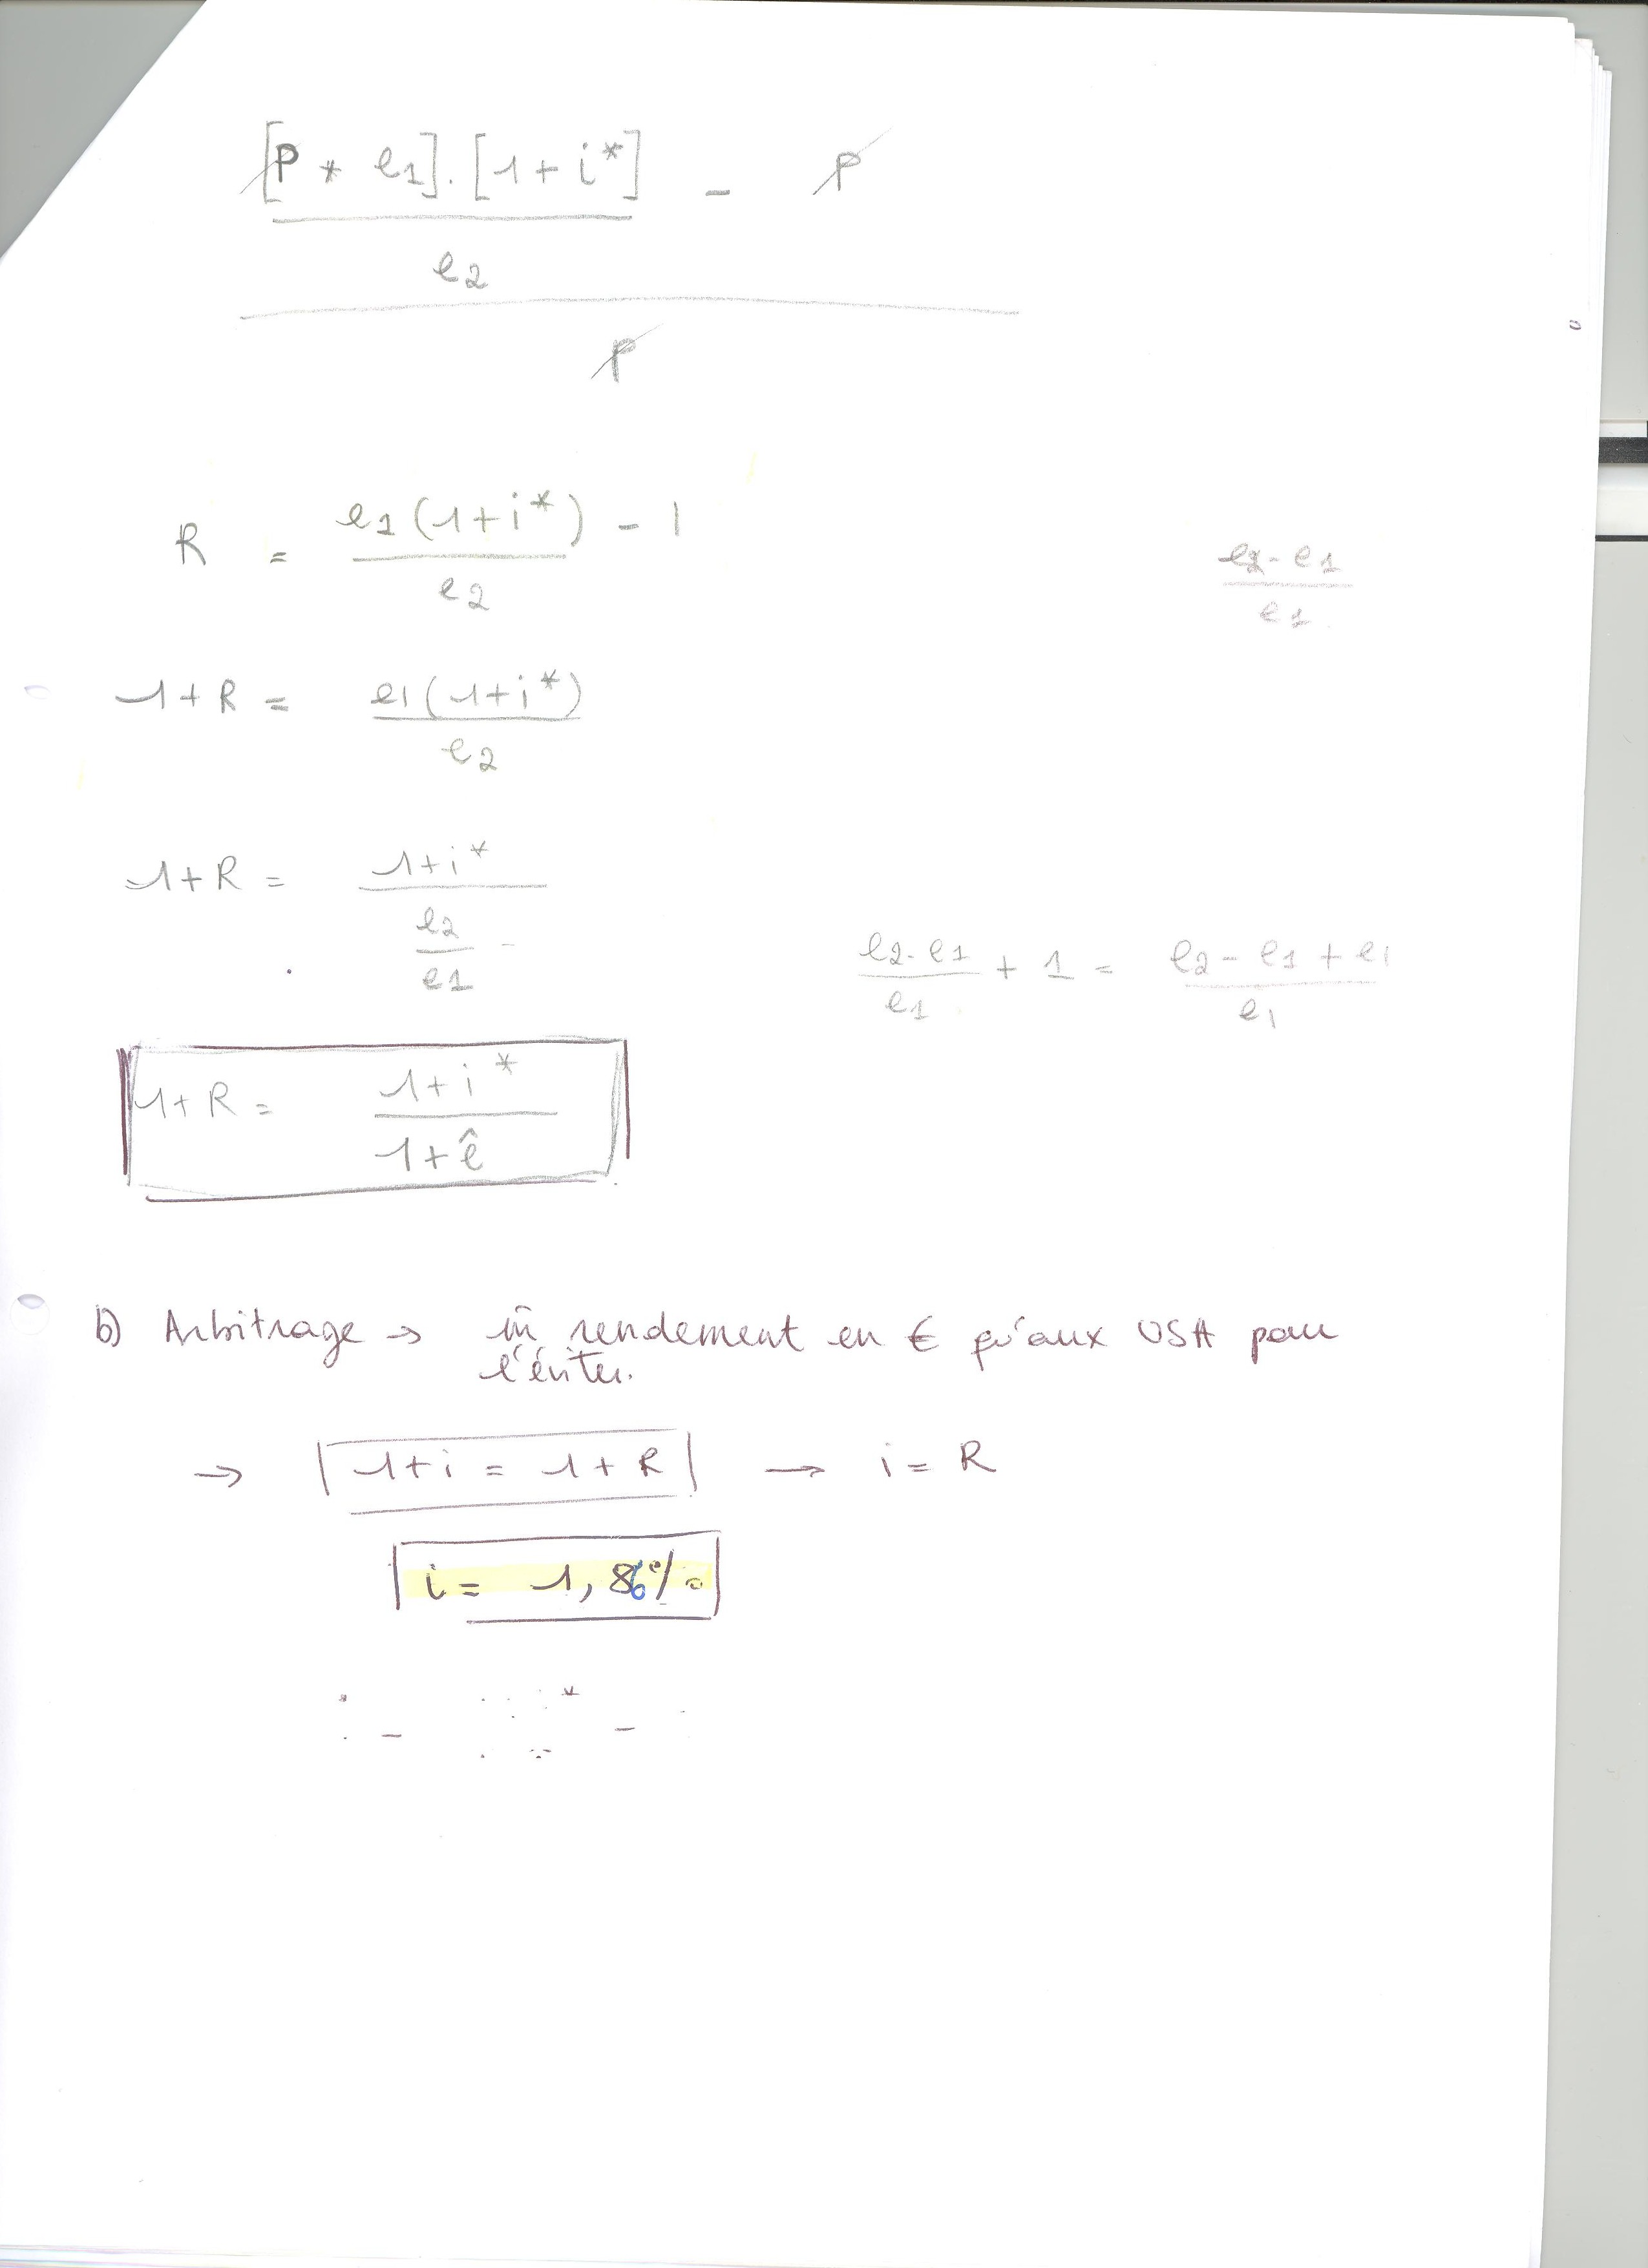 [P * e1] . [1 + i*] - P
e2
P
R = e1 (1 + i*) - 1
e2
e2 - e1
e1
1 + R = e1 (1 + i*)
e2
1 + R = 1 + i*
e2
e1
e2 - e1 + 1 = e2 - e1 + e1
e1 e1
1 + R = 1 + i*
1 + ê
b) Arbitrage → m̄ rendement en € qu'aux USA pour
l'éviter.
→ 1 + i = 1 + R → i = R
i = 1,86%